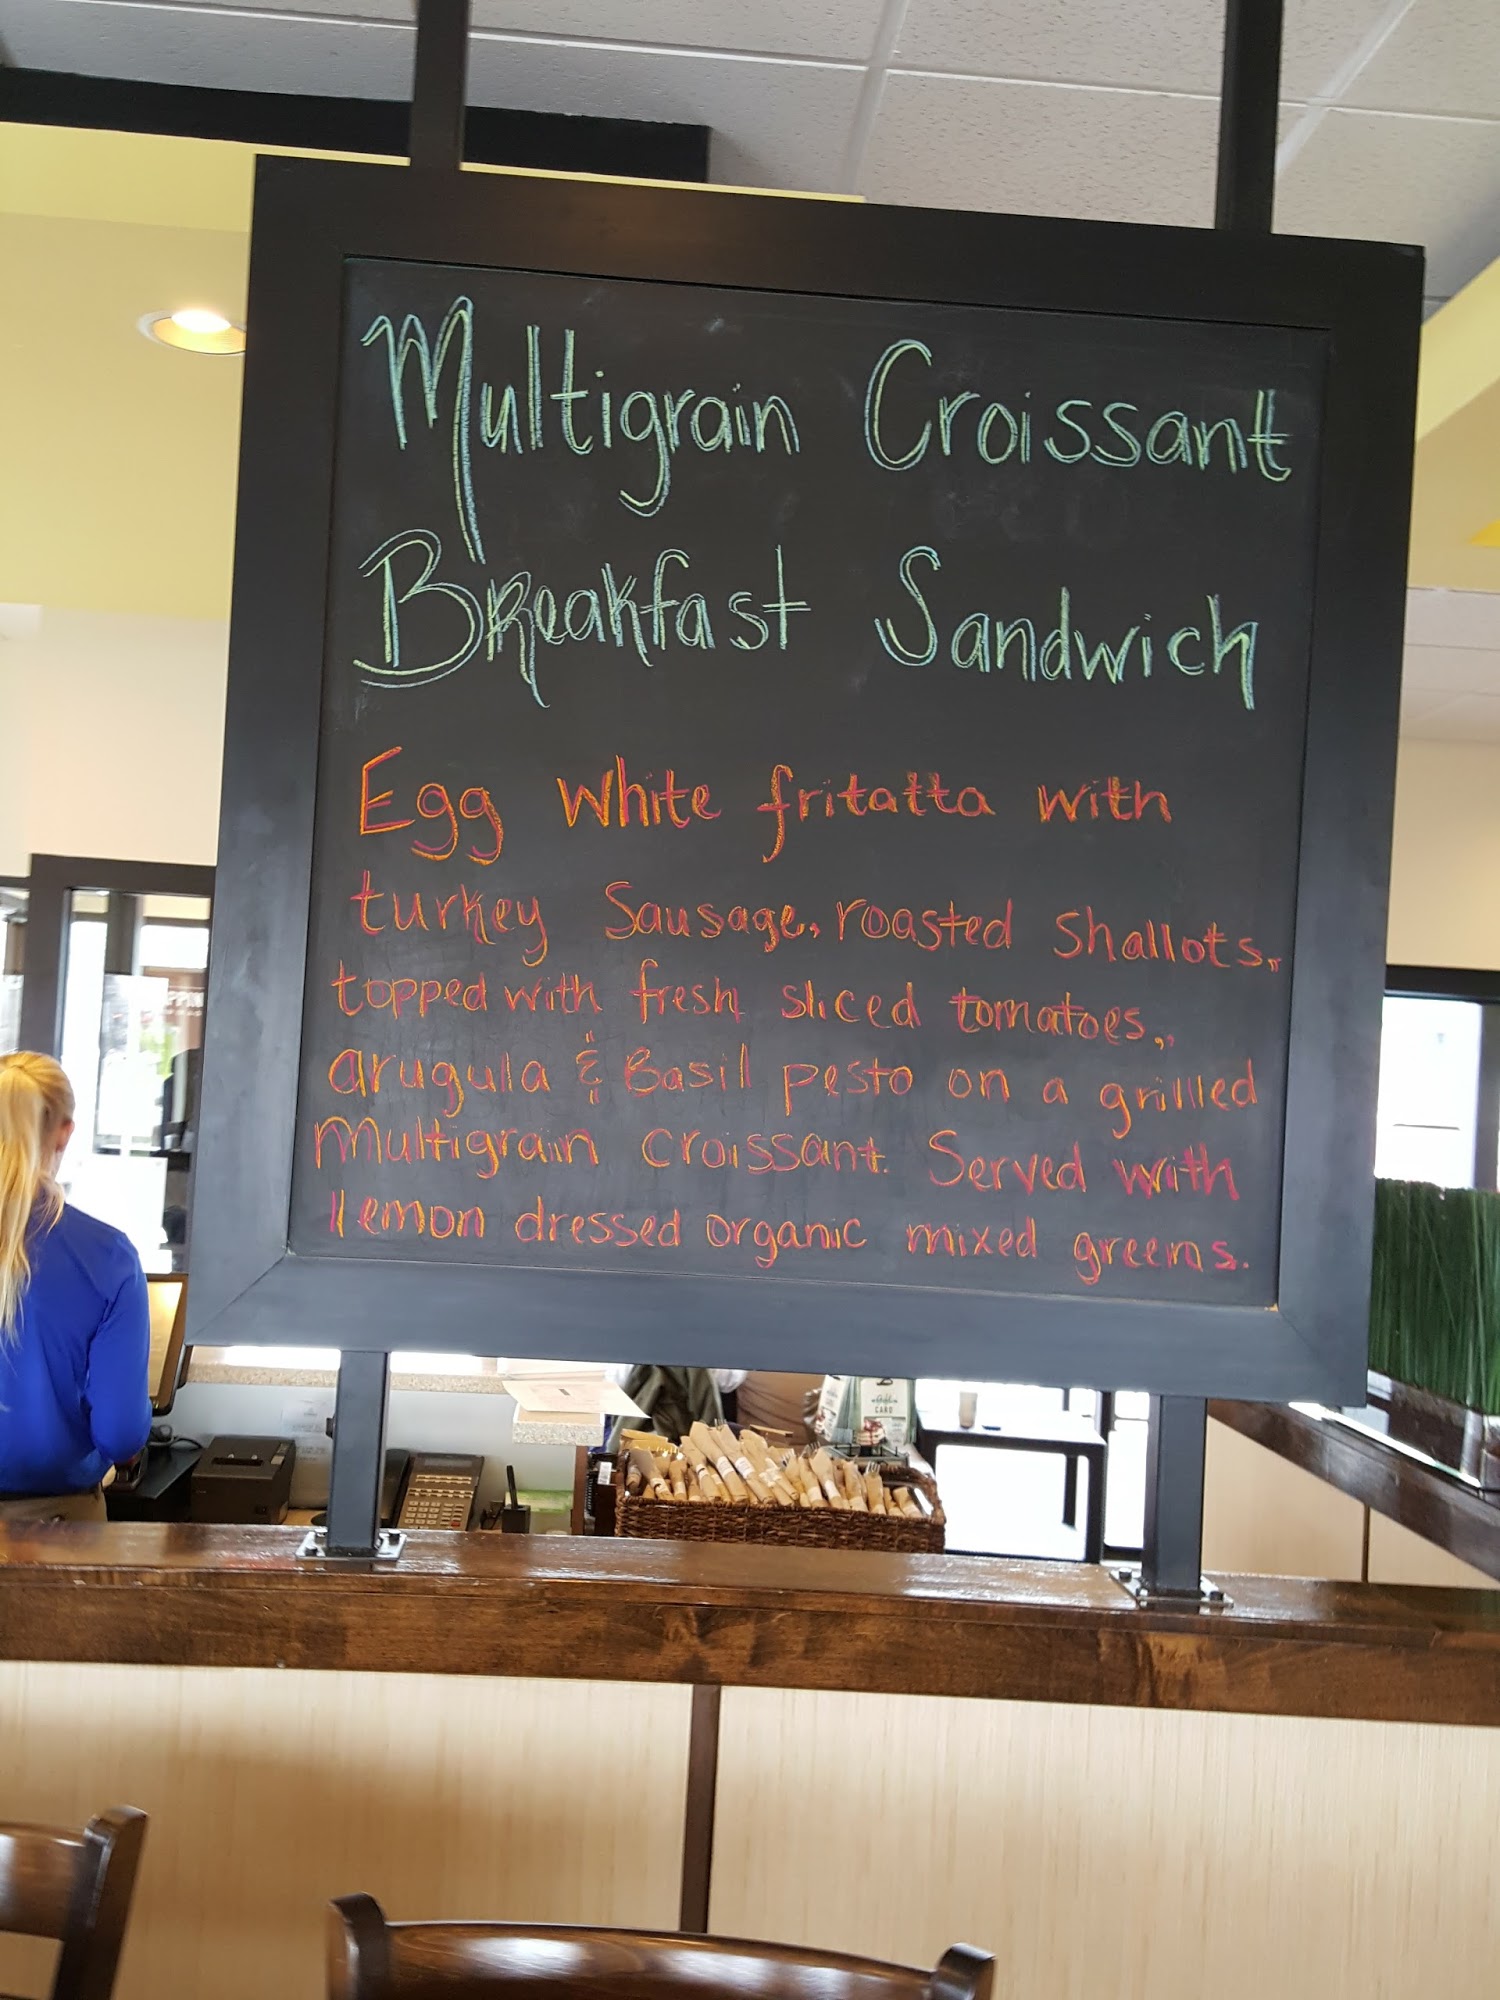 Multigrain Croissant
Breakfast Sandwich
Egg White fritatta with
turkey Sausage, roasted Shallots,
topped with fresh sliced tomatoes,
arugula & Basil pesto on a grilled
Multigrain Croissant. Served with
lemon dressed organic mixed greens.
CARD